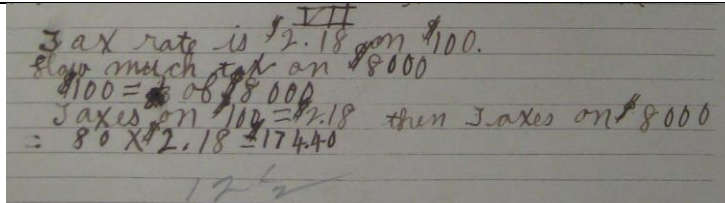 VII
Tax rate is $2.18 on $100.
How much tax on $8000
$100 = of $8000
Taxes on $100 = $2.18 then Taxes on $8000
= 80 X $2.18 = $174.40
12 1/2